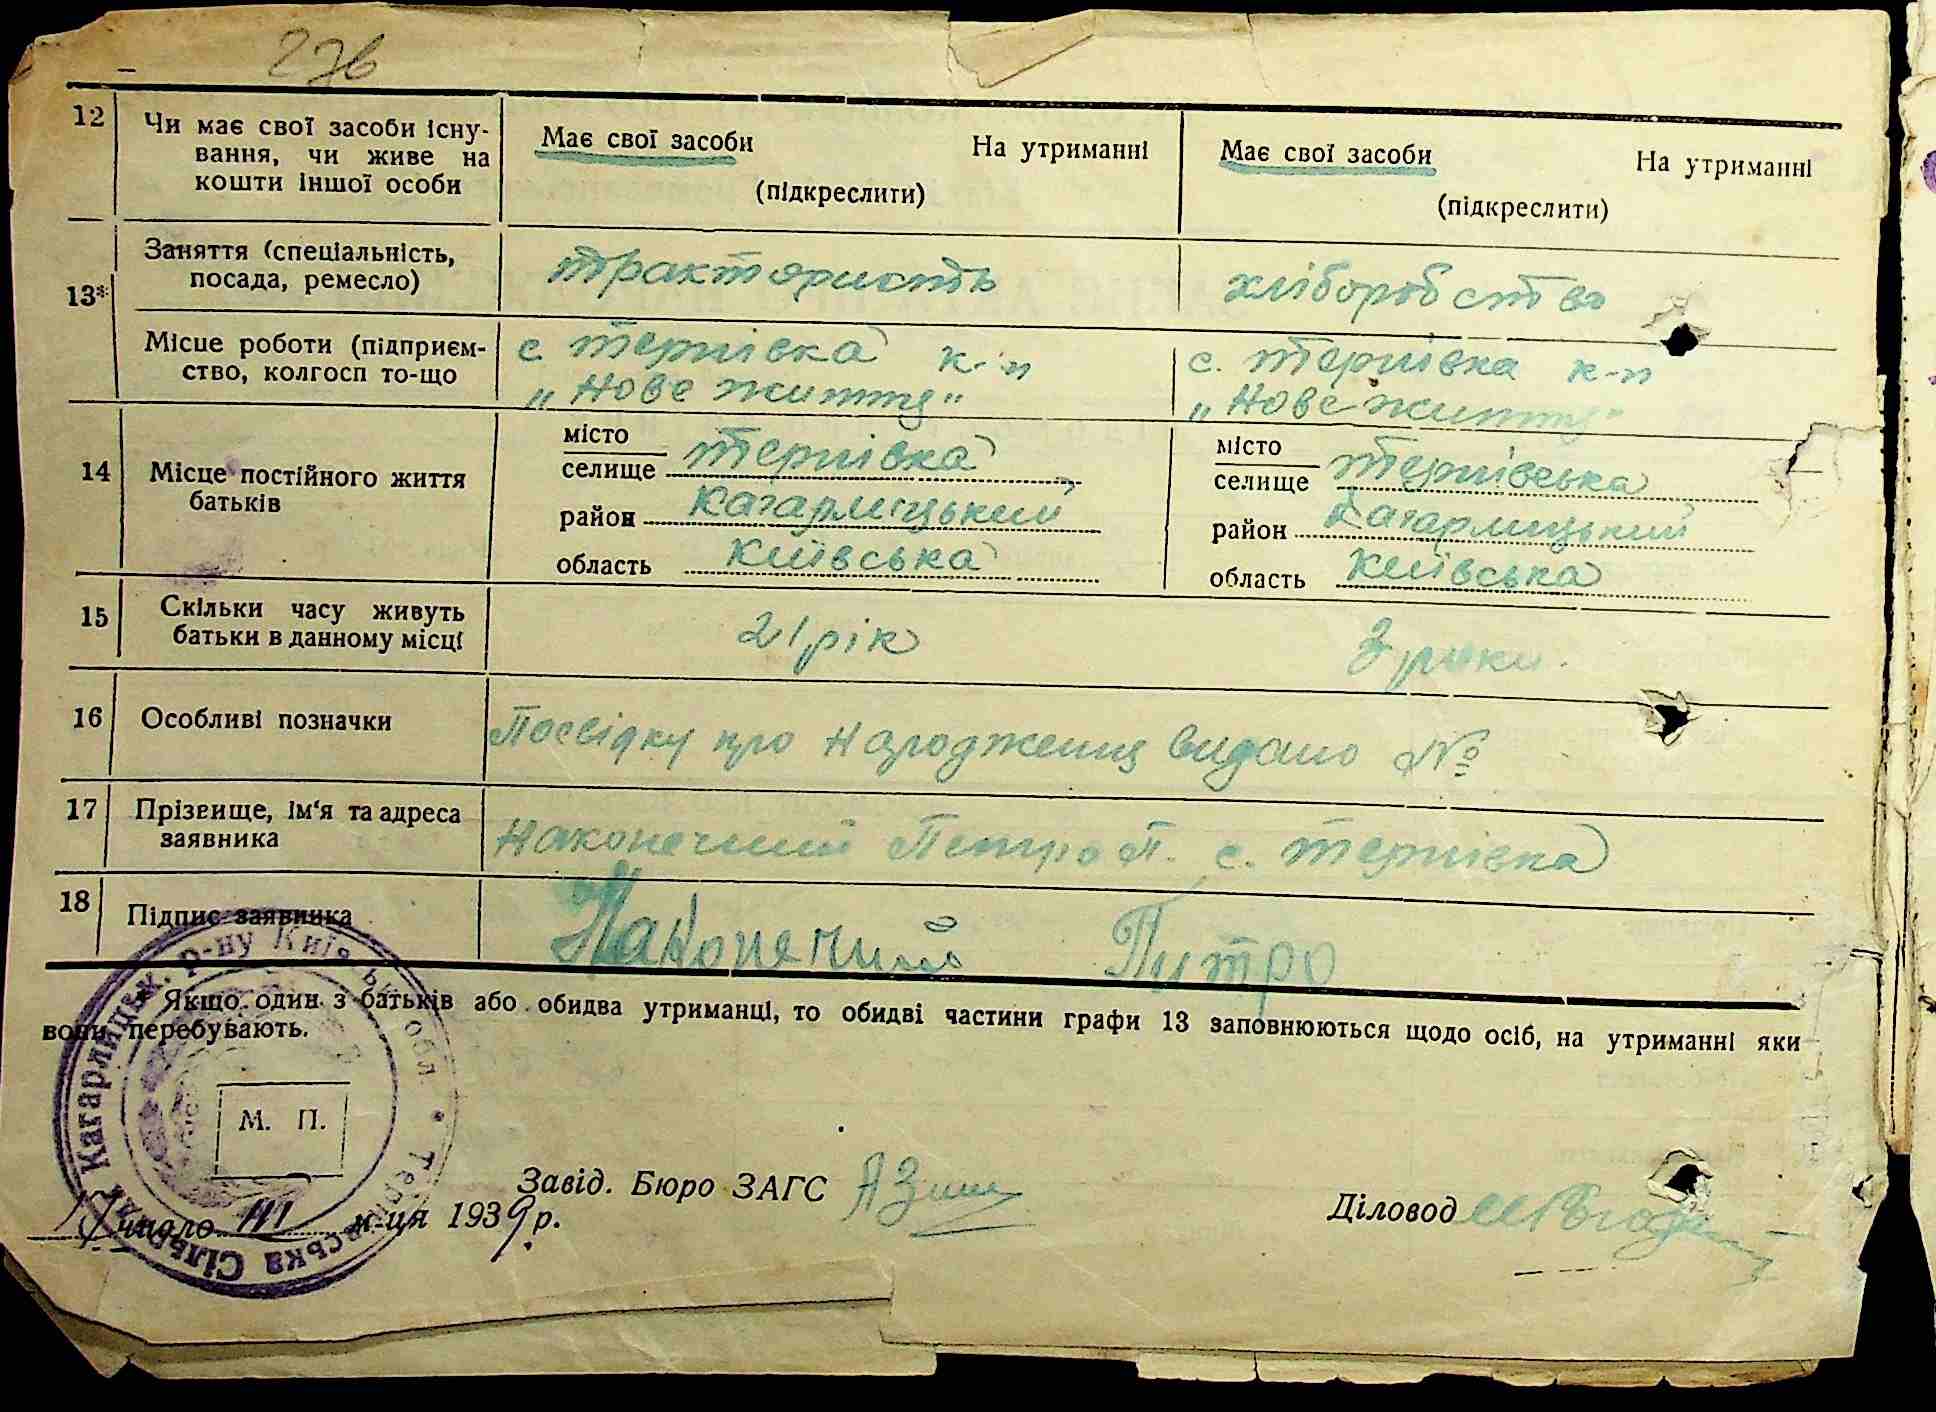 27в
12 Чи має свої засоби існу-
вання, чи живе на
кошти іншої особи
Має свої засоби На утриманні
(підкреслити)
Має свої засоби На утриманні
(підкреслити)
13* Заняття (спеціальність,
посада, ремесло)
трактористь
хліборобство
Місце роботи (підприєм-
ство, колгосп то-що
с. Тернівка к-п
„Нове життя"
с. Тернівка к-п
„Нове життя"
14 Місце постійного життя
батьків
місто
селище Тернівка
район Кагарлицький
область Київська
місто
селище Тернівська
район Кагарлицький
область Київська
15 Скільки часу живуть
батьки в данному місці
21 рік
3 роки
16 Особливі позначки
Посвідку про народження видано №
17 Прізвище, ім'я та адреса
заявника
Наконечний Петро П. с. Тернівка
18 Підпис заявника
Наконечний Питро
Якщо один з батьків або обидва утриманці, то обидві частини графи 13 заповнюються щодо осіб, на утриманні яки
вони перебувають.
Кагарлицьк. р-ну Київськ. обл. • Тернівська Сільрада
М. П.
Завід. Бюро ЗАГС
Діловод
число III м-ця 1939 р.